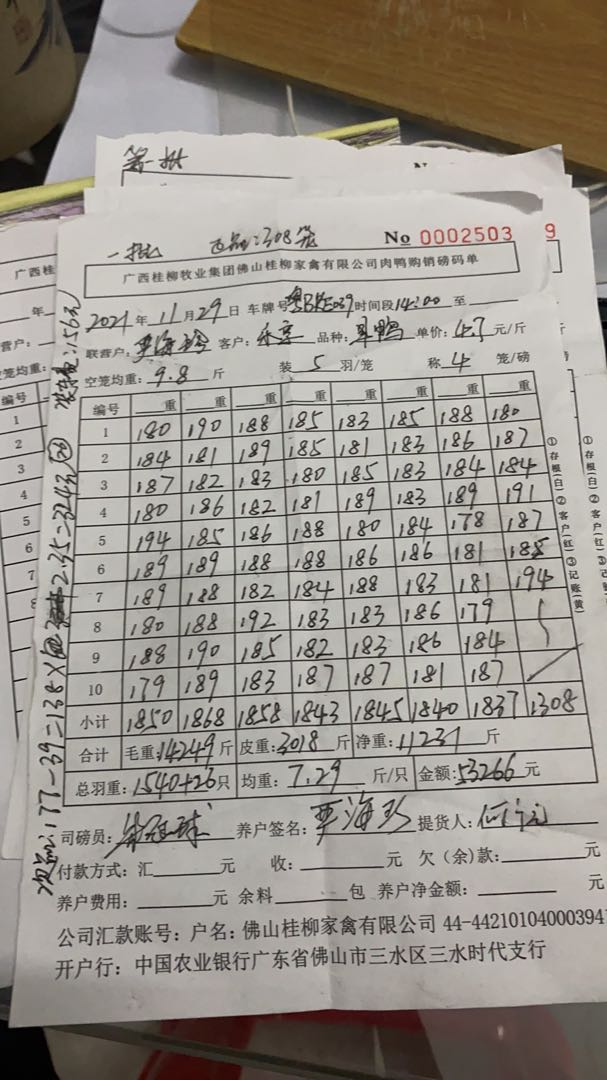 第一批
一批 正品:308笼 No 0002503
广西桂柳牧业集团佛山桂柳家禽有限公司肉鸭购销磅码单
2021年11月29日 车牌号 时间段14:00 至
联营户: 客户: 品种: 单价:4.7元/斤
空笼均重:9.8斤 装5羽/笼 称4笼/磅
编号 重 重 重 重 重 重 重 重
1 180 190 188 185 183 185 188 180
2 184 181 189 185 181 183 186 187
3 187 182 183 180 185 183 184 184
4 180 186 182 181 189 183 189 191
5 194 185 186 188 180 184 178 187
6 189 189 188 188 186 186 181 185
7 189 188 182 184 188 183 181 194
8 180 188 192 183 183 186 179
9 188 190 185 182 183 186 184
10 179 189 183 187 187 181 187
小计 1850 1868 1858 1843 1845 1840 1837 1308
合计 毛重:14249斤 皮重:3018斤 净重:11231斤
总羽重:1540+26只 均重:7.29斤/只 金额:53266元
司磅员: 养户签名:覃海珍 提货人:
付款方式:汇 元 收: 元 欠(余)款: 元
养户费用: 元 余料 包 养户净金额: 元
公司汇款账号:户名:佛山桂柳家禽有限公司 44-442101040003941
开户行:中国农业银行广东省佛山市三水区三水时代支行
①存根(白)②客户(红)③记账(黄)
次品:177-39=138